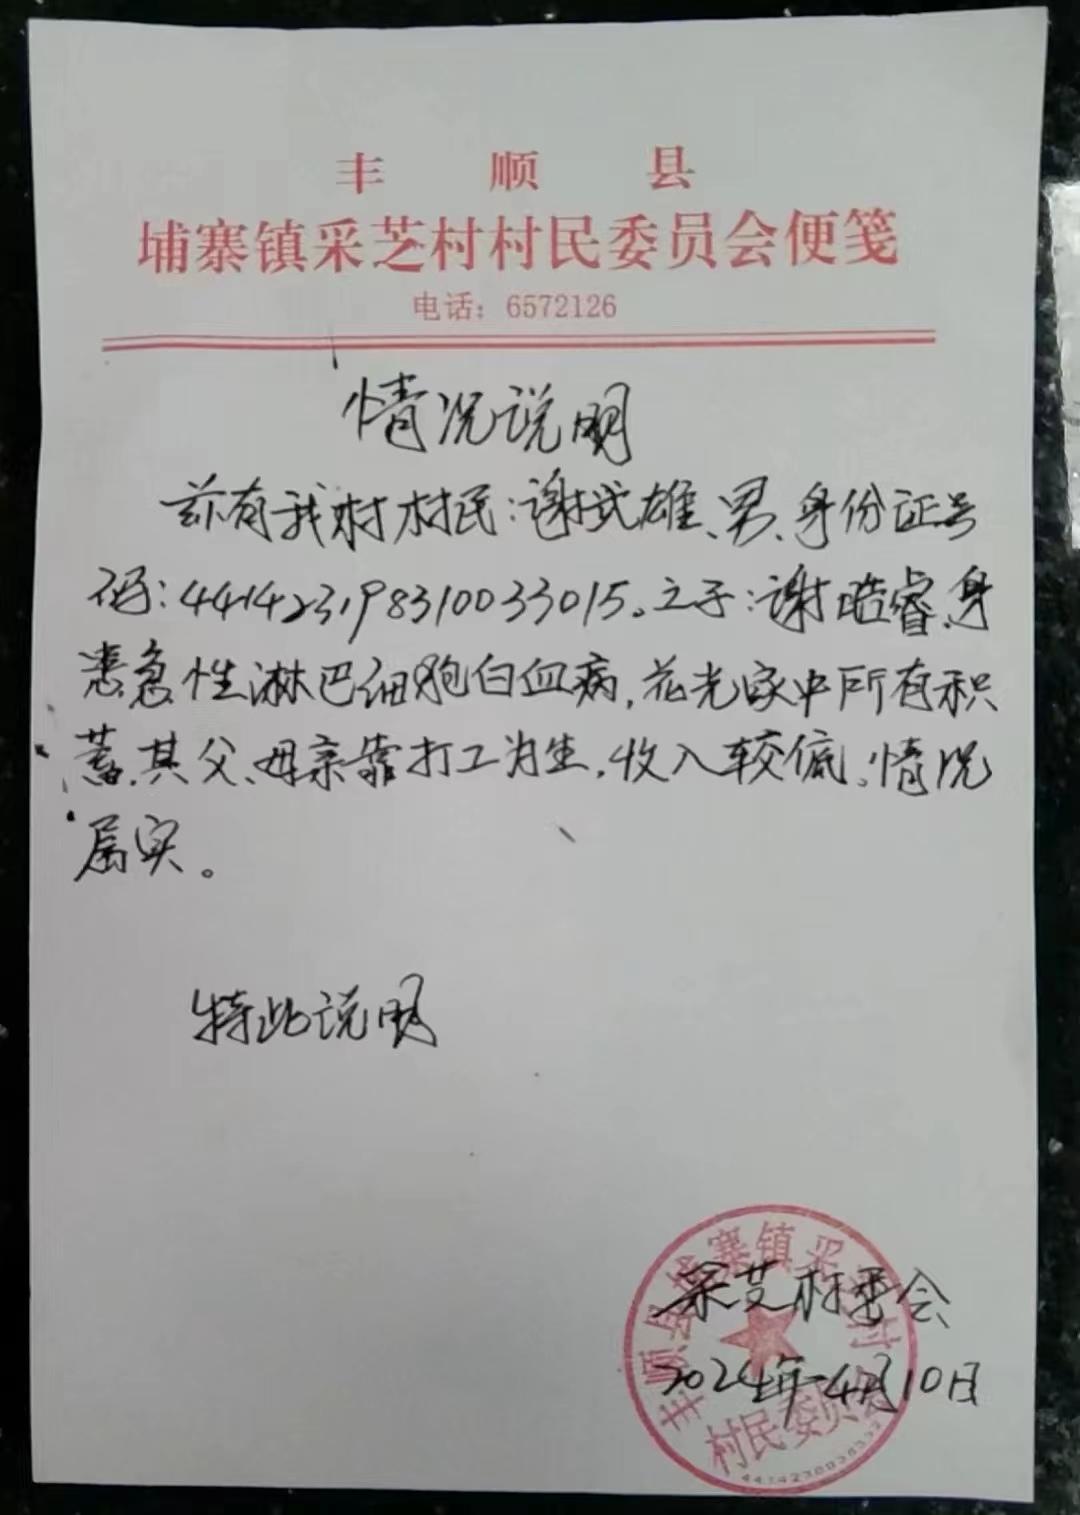 丰顺县
埔寨镇采芝村村民委员会便笺
电话：6572126
情况说明
兹有我村村民：谢武雄、男、身份证号
码：441423198310033015。之子：谢皓睿，身
患急性淋巴细胞白血病，花光家中所有积
蓄，其父、母亲靠打工为生，收入较低。情况
属实。
特此说明
采芝村委会
2024年4月10日
丰顺县埔寨镇采芝村
村民委员会